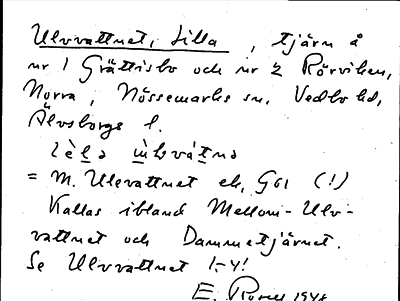 Ulvvattnet, Lilla, tjärn å
nr 1 Grättisbo och nr 2 Rörviken,
Norra, Nössemarks sn, Vedbo hd,
Älvsborgs l.
= m. Ulevattnet ek, G61 (!)
Kallas ibland Mellom-Ulv-
vattnet och Dammetjärnet.
Se Ulvvattnet 1-4!
E.